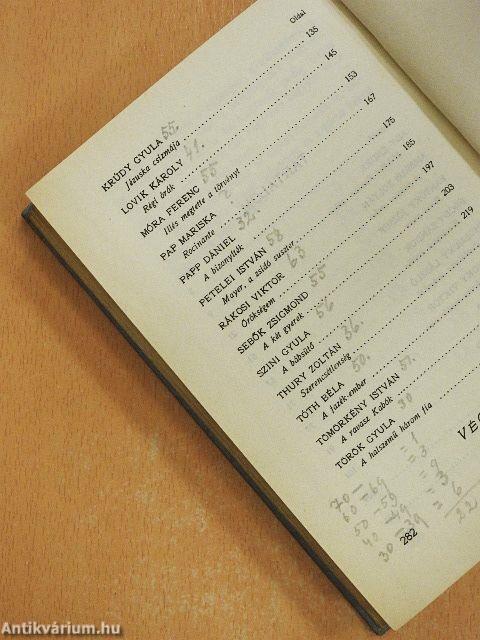 Oldal
KRÚDY GYULA 55.
Jézuska csizmája 135
LOVIK KÁROLY 41.
Régi órák 145
MÓRA FERENC 55
Illés meglette a törvényt 153
PAP MARISKA ?
Rocinante 167
PAPP DÁNIEL 32.
A bizonyítok 175
PETELEI ISTVÁN 58
Mayer, a zsidó suszter 185
RÁKOSI VIKTOR 63
Örökségem 197
SEBŐK ZSIGMOND 55
A két gyerek 203
SZINI GYULA 56
A bábsütő 219
THURY ZOLTÁN 36.
Szerencsétlenség
TÓTH BÉLA 50.
A fazék-ember
TÖMÖRKÉNY ISTVÁN 51.
A ravasz Kabók
TÖRÖK GYULA 30
A halszemű három fia
VÉG
70 - 69
60 - 59
50 - 59
40 - 39
30
282
Antikvárium.hu